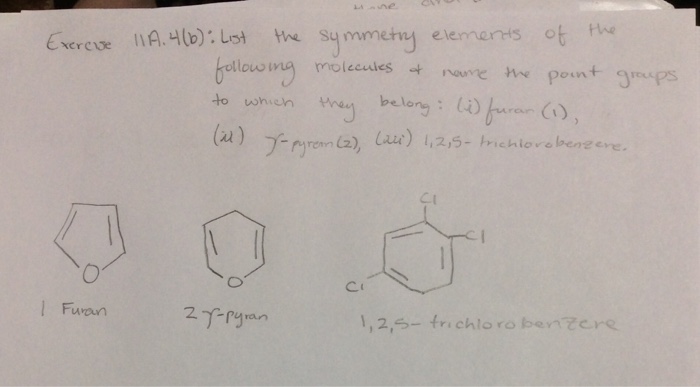 Exercise 11A.4(b): List the symmetry elements of the
following molecules & name the point groups
to which they belong: (i) furan (1),
(ii) γ-pyran (2), (iii) 1,2,5-trichlorobenzene.
Cl
Cl
O
O
Cl
1 Furan
2 γ-pyran
1,2,5-trichlorobenzene